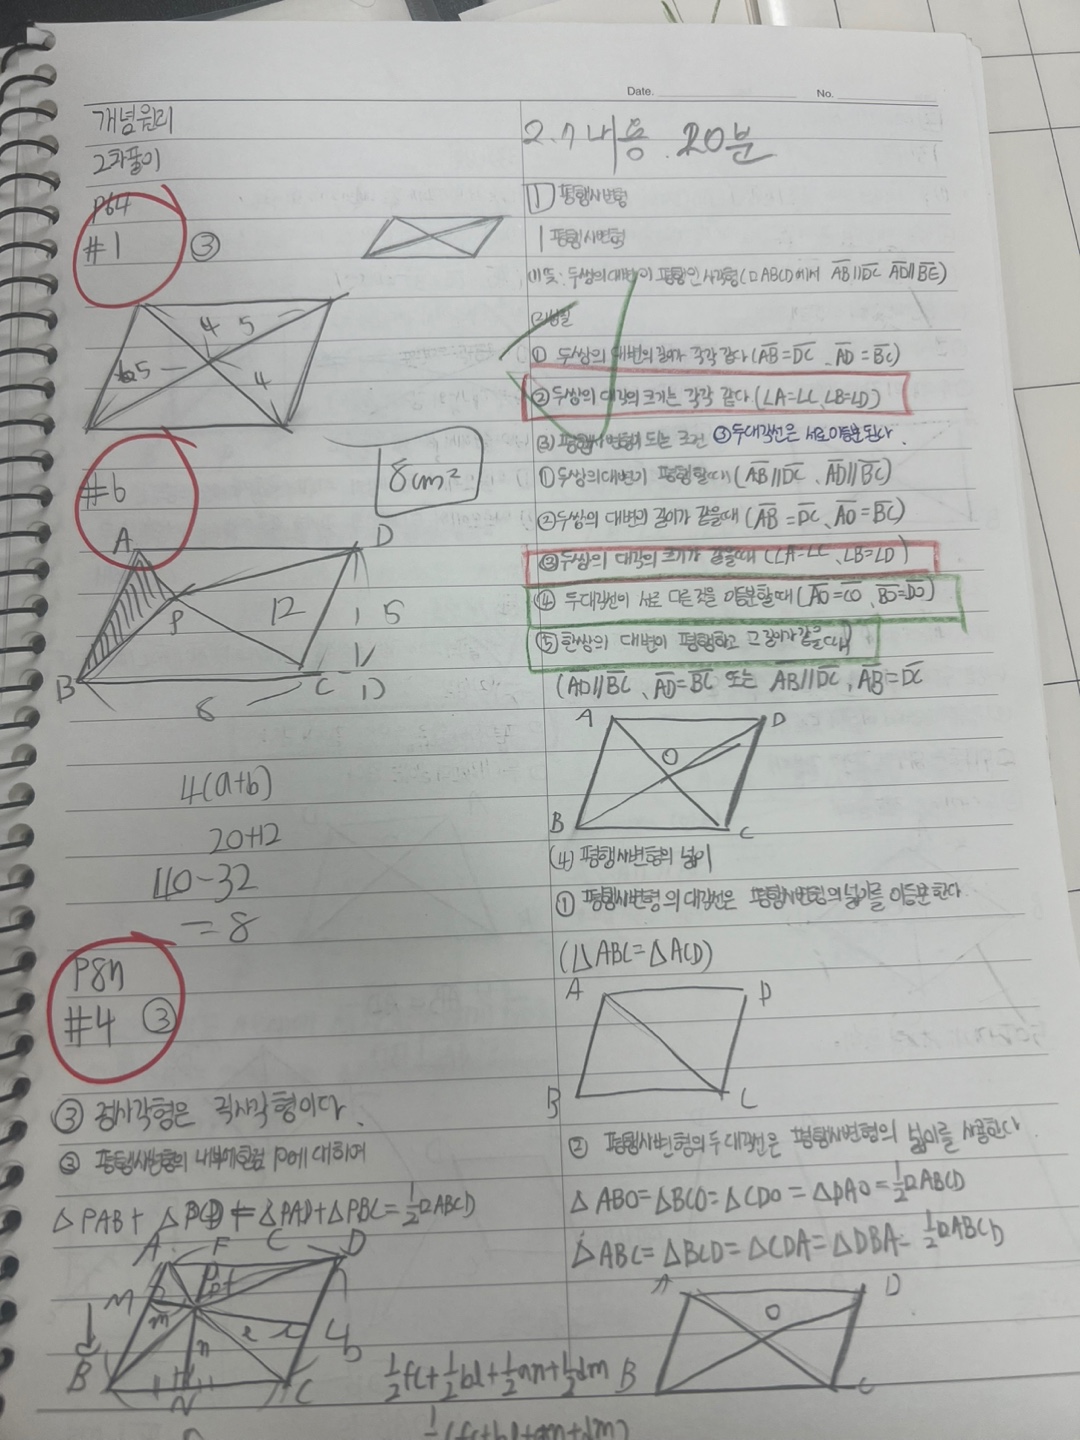 Date.
No.
개념원리
2차풀이
P64
#1 ③
4 5
5
4
#6
8cm²
A D
P
12
5
B C
8
4(a+b)
20+12
40-32
=8
P87
#4 ③
③ 정사각형은 직사각형이다.
② 평행사변형의 내부에 한점 P에 대하여
△PAB+△PCD=△PAD+△PBC=½□ABCD
A F C D
M P
m e
n
B N C
½fc+½bl+½an+½dm
2.7 내용 20분
1 평행사변형
1 평행사변형
(1) 뜻: 두쌍의 대변이 평행인 사각형(□ABCD에서 AB//DC AD//BE)
(2) 성질
① 두쌍의 대변의 길이가 각각 같다(AB=DC, AD=BC)
② 두쌍의 대각의 크기는 각각 같다.(∠A=∠C, ∠B=∠D)
(3) 평행사변형이 되는 조건 ③ 두대각선은 서로 이등분된다.
① 두쌍의 대변이 평행할때(AB//DC, AD//BC)
② 두쌍의 대변의 길이가 같을때(AB=DC, AD=BC)
③ 두쌍의 대각의 크기가 같을때(∠A=∠C, ∠B=∠D)
④ 두대각선이 서로 다른것을 이등분할때(AO=CO, BO=DO)
⑤ 한쌍의 대변이 평행하고 그 길이가 같을때)
(AD//BC, AD=BC 또는 AB//DC, AB=DC
A D
O
B C
(4) 평행사변형의 넓이
① 평행사변형의 대각선은 평행사변형의 넓이를 이등분한다
(△ABC=△ACD)
A D
B C
② 평행사변형의 두 대각선은 평행사변형의 넓이를 사등한다.
△ABO=△BCO=△CDO=△DAO=½□ABCD
△ABC=△BCD=△CDA=△DBA=½□ABCD
A D
O
B C